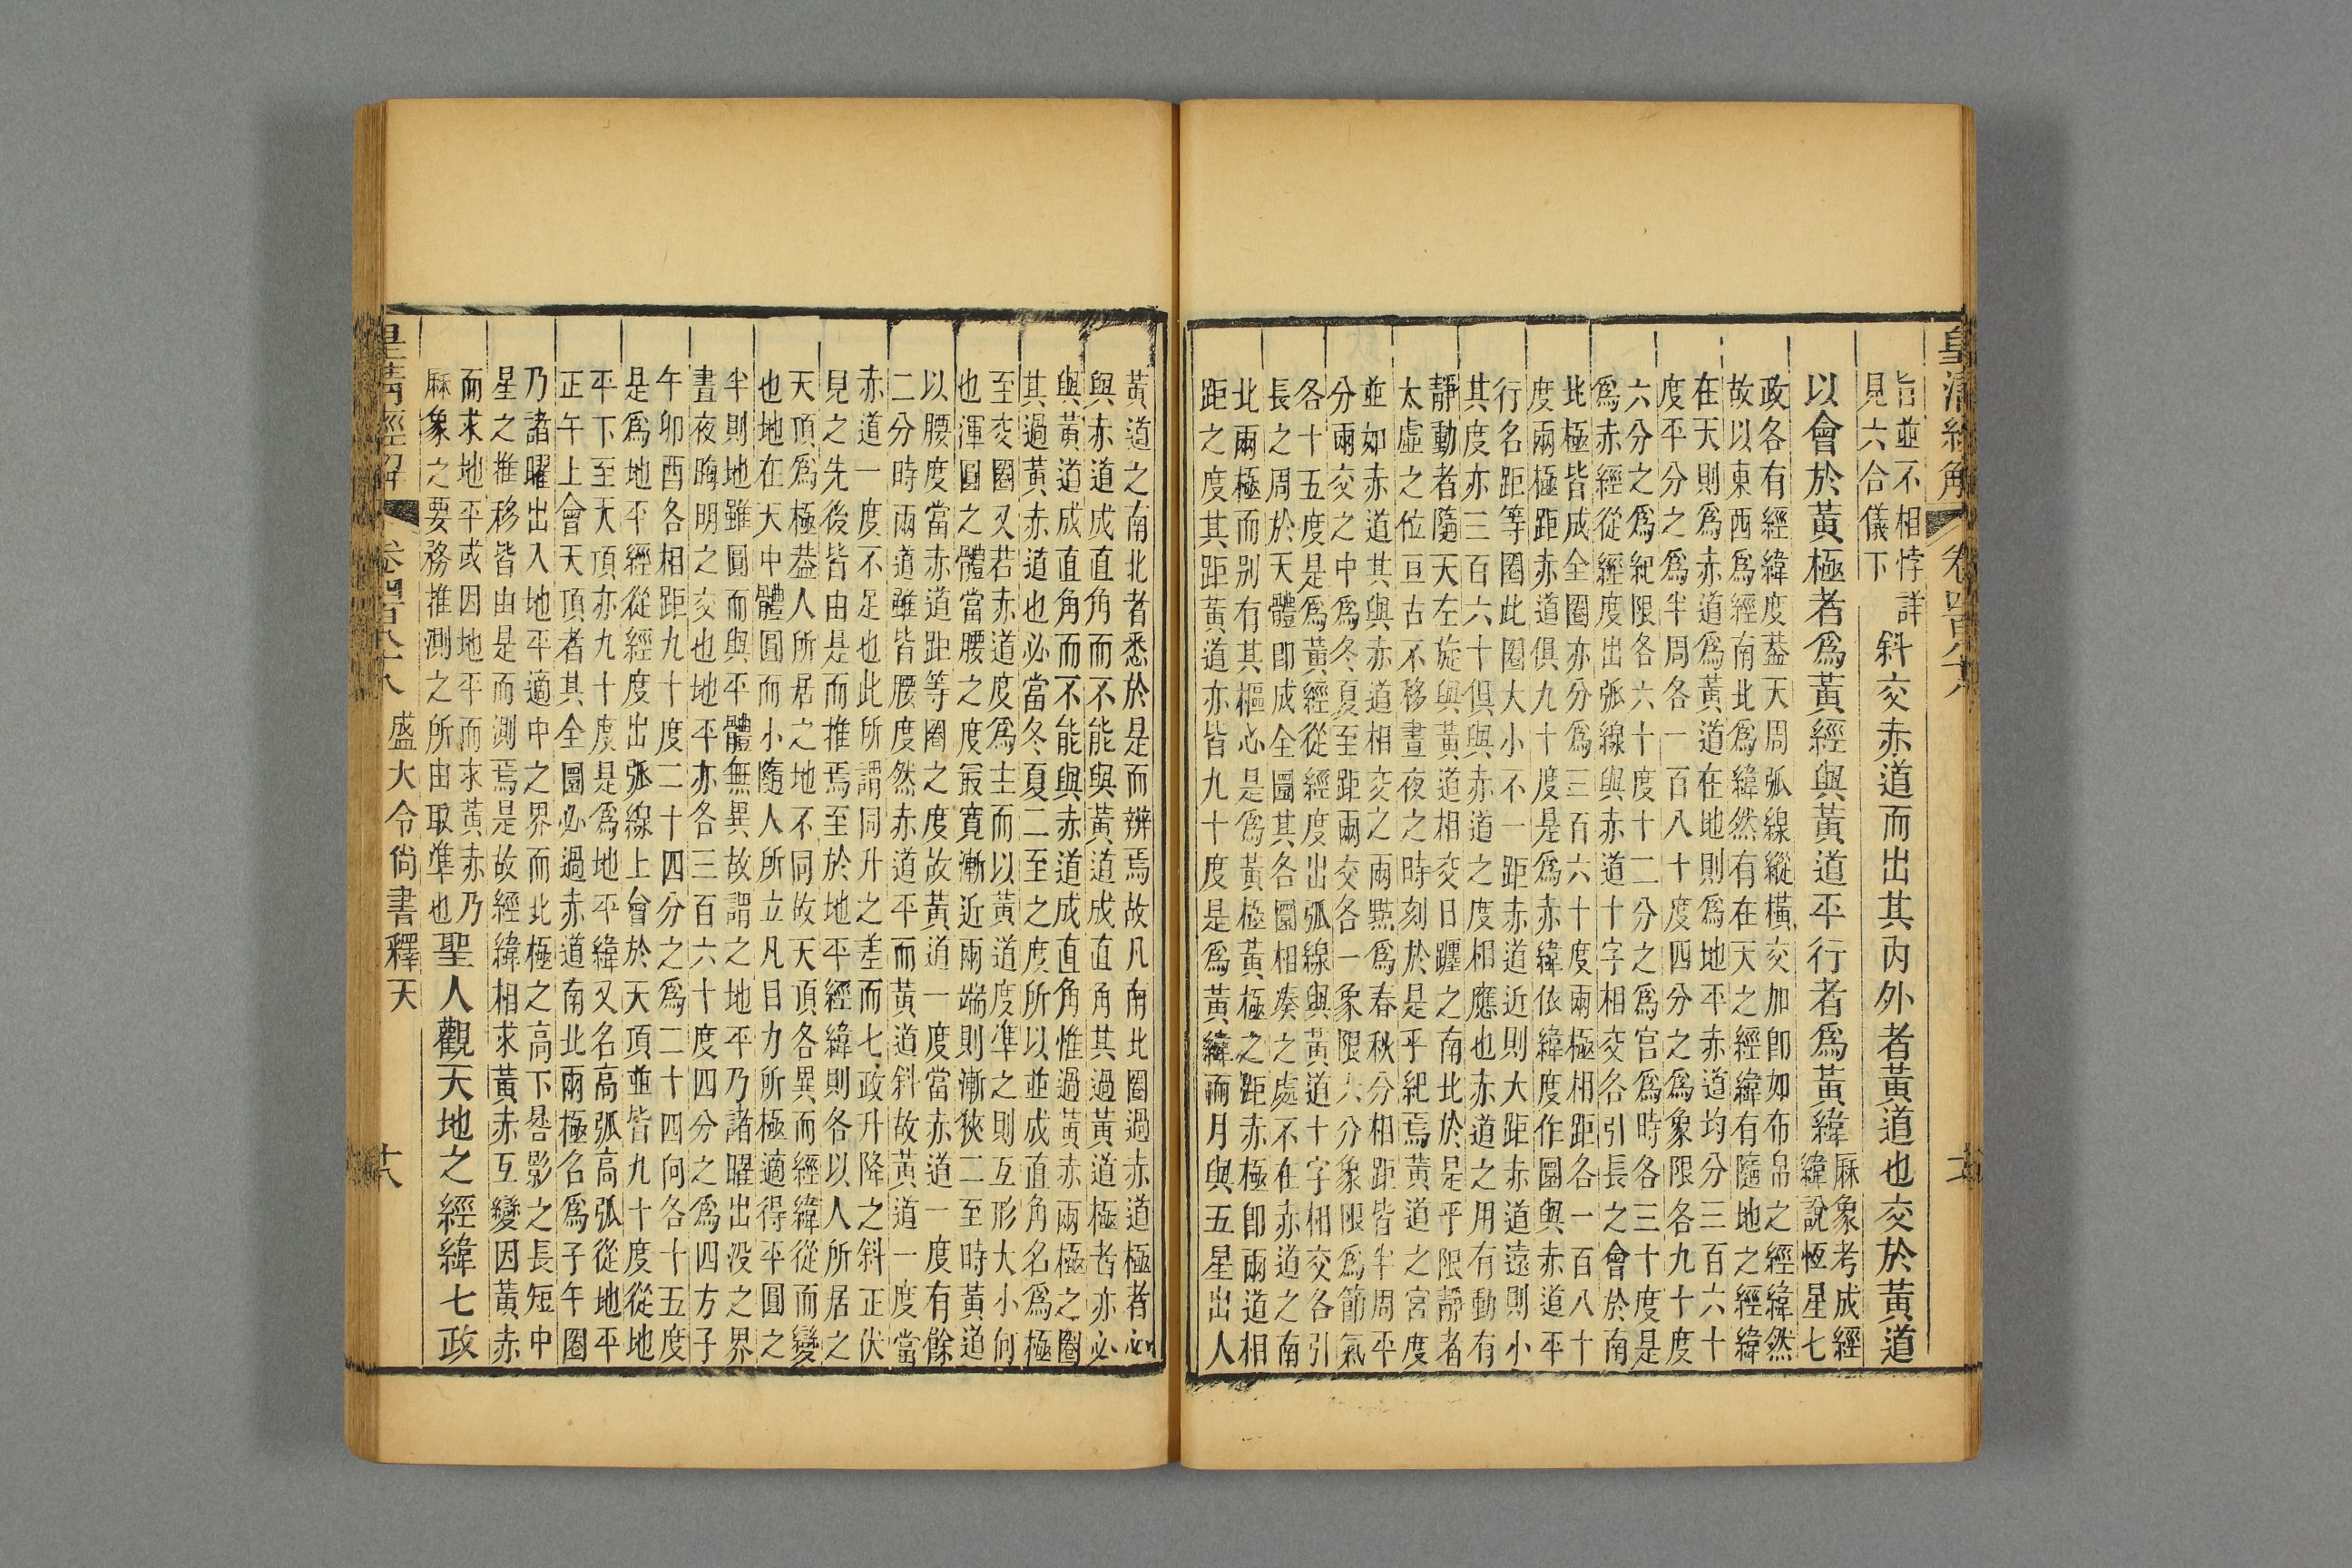 皇清經解
旨並不相悖詳
見六合儀下
斜交赤道而出其内外者黃道也交於黃道
以會於黃極者爲黃經與黃道平行者爲黃緯
厤象考成經
緯說恆星七
政各有經緯度葢天周弧線縱橫交加卽如布帛之經緯然
故以東西爲經南北爲緯然有在天之經緯有隨地之經緯
在天則爲赤道爲黃道在地則爲地平赤道均分三百六十
度平分之爲半周各一百八十度四分之爲象限各九十度
六分之爲紀限各六十度十二分之爲宮爲時各三十度是
爲赤經從經度出弧線與赤道十字相交各引長之會於南
北極皆成全圈亦分爲三百六十度兩極相距各一百八十
度兩極距赤道俱九十度是爲赤緯依緯度作圈與赤道平
行名距等圈此圈大小不一距赤道近則大距赤道遠則小
其度亦三百六十俱與赤道之度相應也赤道之用有動有
靜動者隨天左旋與黃道相交日躔之南北於是乎限靜者
太虛之位亘古不移晝夜之時刻於是乎紀焉黃道之宮度
並如赤道其與赤道相交之兩㸃爲春秋分相距皆半周平
分兩交之中爲冬夏至距兩交各一象限六分象限爲節氣
各十五度是爲黃經從經度出弧線與黃道十字相交各引
長之周於天體卽成全圈其各圈相湊之處不在赤道之南
北兩極而別有其樞心是爲黃極黃極之距赤極卽兩道相
距之度其距黃道亦皆九十度是爲黃緯而月與五星出入
黃道之南北者悉於是而辨焉故凡南北圈過赤道極者必
與赤道成直角而不能與黃道成直角其過黃道極者亦必
與黃道成直角而不能與赤道成直角惟過黃赤兩極之圈
其過黃赤道也必當冬夏二至之度所以並成直角名爲極
至交圈又若赤道度爲主而以黃道度準之則互形大小何
也渾圓之體當腰之度最寬漸近兩端則漸狹二至時黃道
以腰度當赤道距等圈之度故黃道一度當赤道一度有餘
二分時兩道雖皆腰度然赤道平而黃道斜故黃道一度當
赤道一度不足也此所謂同升之差而七政升降之斜正伏
見之先後皆由是而推焉至於地平經緯則各以人所居之
天頂爲極葢人所居之地不同故天頂各異而經緯從而變
也地在天中體圓而小隨人所立凡目力所極適得平圓之
半則地雖圓而與平體無異故謂之地平乃諸曜出沒之界
晝夜晦明之交也地平亦各三百六十度四分之爲四方子
午卯酉各相距九十度二十四分之爲二十四向各十五度
是爲地平經從經度出弧線上會於天頂並皆九十度從地
平下至天頂亦九十度是爲地平緯又名高弧高弧從地平
正午上會天頂者其全圈必過赤道南北兩極名爲子午圈
乃諸曜出入地平適中之界而北極之高下晷影之長短中
星之推移皆由是而測焉是故經緯相求黃赤互變因黃赤
而求地平或因地平而求黃赤乃
厤象之要務推測之所由取準也
聖人觀天地之經緯七政
皇清經解 卷四百八十八 盛大令尙書釋天 六